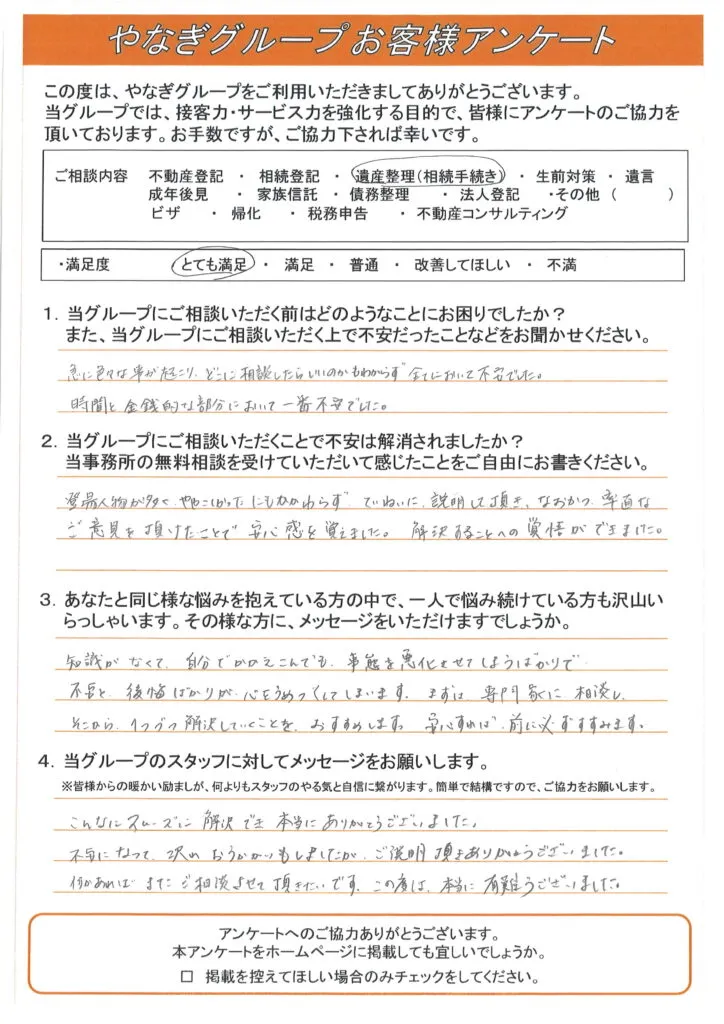 やなぎグループお客様アンケート
この度は、やなぎグループをご利用いただきましてありがとうございます。
当グループでは、接客力・サービス力を強化する目的で、皆様にアンケートのご協力を
頂いております。お手数ですが、ご協力下されば幸いです。
ご相談内容 不動産登記 ・ 相続登記 ・ 遺産整理(相続手続き) ・ 生前対策 ・ 遺言
成年後見 ・ 家族信託 ・ 債務整理 ・ 法人登記 ・その他 ( )
ビザ ・ 帰化 ・ 税務申告 ・ 不動産コンサルティング
・満足度 とても満足 ・ 満足 ・ 普通 ・ 改善してほしい ・ 不満
1. 当グループにご相談いただく前はどのようなことにお困りでしたか？
また、当グループにご相談いただく上で不安だったことなどをお聞かせください。
急に色々な事が起こり、どこに相談したらいいのかもわからず 全てにおいて不安でした。
時間と金銭的な部分において一番不安でした。
2. 当グループにご相談いただくことで不安は解消されましたか？
当事務所の無料相談を受けていただいて感じたことをご自由にお書きください。
登場人物が多く、ややこしかったにもかかわらず ていねいに、説明して頂き、なおかつ、率直な
ご意見を頂けたことで 安心感を覚えました。 解決することへの覚悟ができました。
3. あなたと同じ様な悩みを抱えている方の中で、一人で悩み続けている方も沢山い
らっしゃいます。その様な方に、メッセージをいただけますでしょうか。
知識がなくて、自分でかかえこんでも、事態を悪化させてしまうばかりで
不安と、後悔ばかりが、心をうめつくしてしまいます。まずは、専門家に相談し、
そこから、1つづつ解決していくことを、おすすめします。安心すれば、前に必ずすすみます。
4. 当グループのスタッフに対してメッセージをお願いします。
※皆様からの暖かい励ましが、何よりもスタッフのやる気と自信に繋がります。簡単で結構ですので、ご協力をお願いします。
こんなにスムーズに 解決でき 本当にありがとうございました。
不安になって、沢山 おうかがいもしましたが、ご説明頂きありがとうございました。
何かあれば またご相談させて頂きたいです。この度は、本当に有難うございました。
アンケートへのご協力ありがとうございます。
本アンケートをホームページに掲載しても宜しいでしょうか。
□ 掲載を控えてほしい場合のみチェックをしてください。